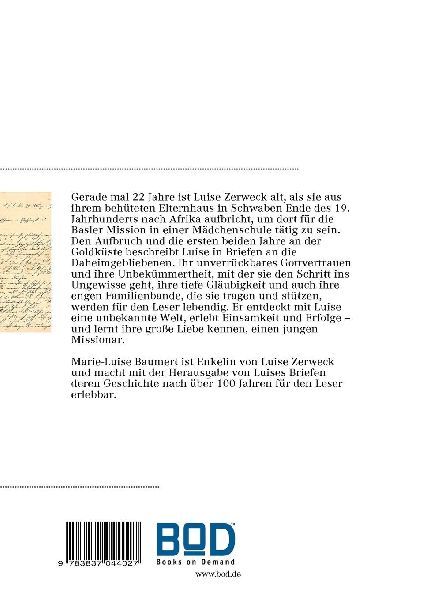 Gerade mal 22 Jahre ist Luise Zerweck alt, als sie aus
ihrem behüteten Elternhaus in Schwaben Ende des 19.
Jahrhunderts nach Afrika aufbricht, um dort für die
Basler Mission in einer Mädchenschule tätig zu sein.
Den Aufbruch und die ersten beiden Jahre an der
Goldküste beschreibt Luise in Briefen an die
Daheimgebliebenen. Ihr unverrückbares Gottvertrauen
und ihre Unbekümmertheit, mit der sie den Schritt ins
Ungewisse geht, ihre tiefe Gläubigkeit und auch ihre
engen Familienbande, die sie tragen und stützen,
werden für den Leser lebendig. Er entdeckt mit Luise
eine unbekannte Welt, erlebt Einsamkeit und Erfolge –
und lernt ihre große Liebe kennen, einen jungen
Missionar.
Marie-Luise Baumert ist Enkelin von Luise Zerweck
und macht mit der Herausgabe von Luises Briefen
deren Geschichte nach über 100 Jahren für den Leser
erlebbar.
9 783837 044027
BOD
Books on Demand
www.bod.de